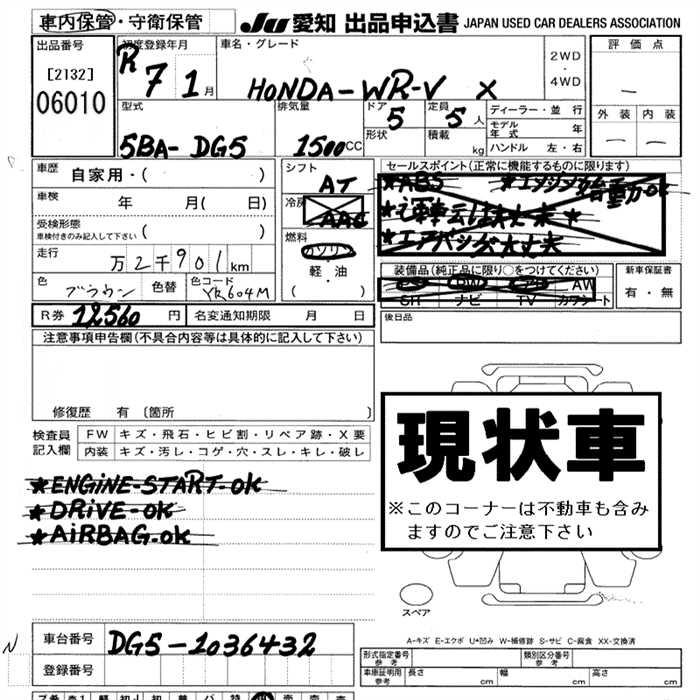 車内保管・守衛保管 JU 愛知 出品申込書 JAPAN USED CAR DEALERS ASSOCIATION
出品番号 初度登録年月 車名・グレード 2WD・4WD 評価点
[2132] R 7 1月 HONDA-WR-V X
06010
型式 排気量 ドア 5 定員 5人 ディーラー・並行 外装 内装
形状 積載 kg モデル年式 年
5BA-DG5 1500CC ハンドル 左・右
車歴 自家用・( ) シフト AT セールスポイント(正常に機能するものに限ります)
車検 年 月( 日) 冷房 AAC ★ABS ★エンジン始動OK
受検形態 ★運転云は大丈夫★
車検付きのみ記入して下さい ( ) 燃料 ★エアバッグ大丈夫
走行 万2千901km ガソリン
軽・油 装備品(純正品に限り○をつけてください) 新車保証書
色 ブラウン 色替 色コード YR604M ( ) PS PW アB AW 有・無
SR ナビ TV カワシート
R券 12560円 名変通知期限 月 日 後日品
注意事項申告欄(不具合内容等は具体的に記入して下さい)
修復歴 有〔箇所 〕
現状車
※このコーナーは不動車も含みますのでご注意下さい
検査員記入欄 FW キズ・飛石・ヒビ割・リペア跡・X要
内装 キズ・汚レ・コゲ・穴・スレ・キレ・破レ
★ENGiNE-START-OK
★DRiVE-OK
★AiRBAG-OK
スペア
A-キズ E-エクボ U*凹み W-補修跡 S-サビ C-腐食 XX-交換済
N 車台番号 DG5-1036432
登録番号
形式指定番号 参考 類別区分番号 参考
車庫証明用 参考 長さ cm 幅 cm 高さ cm